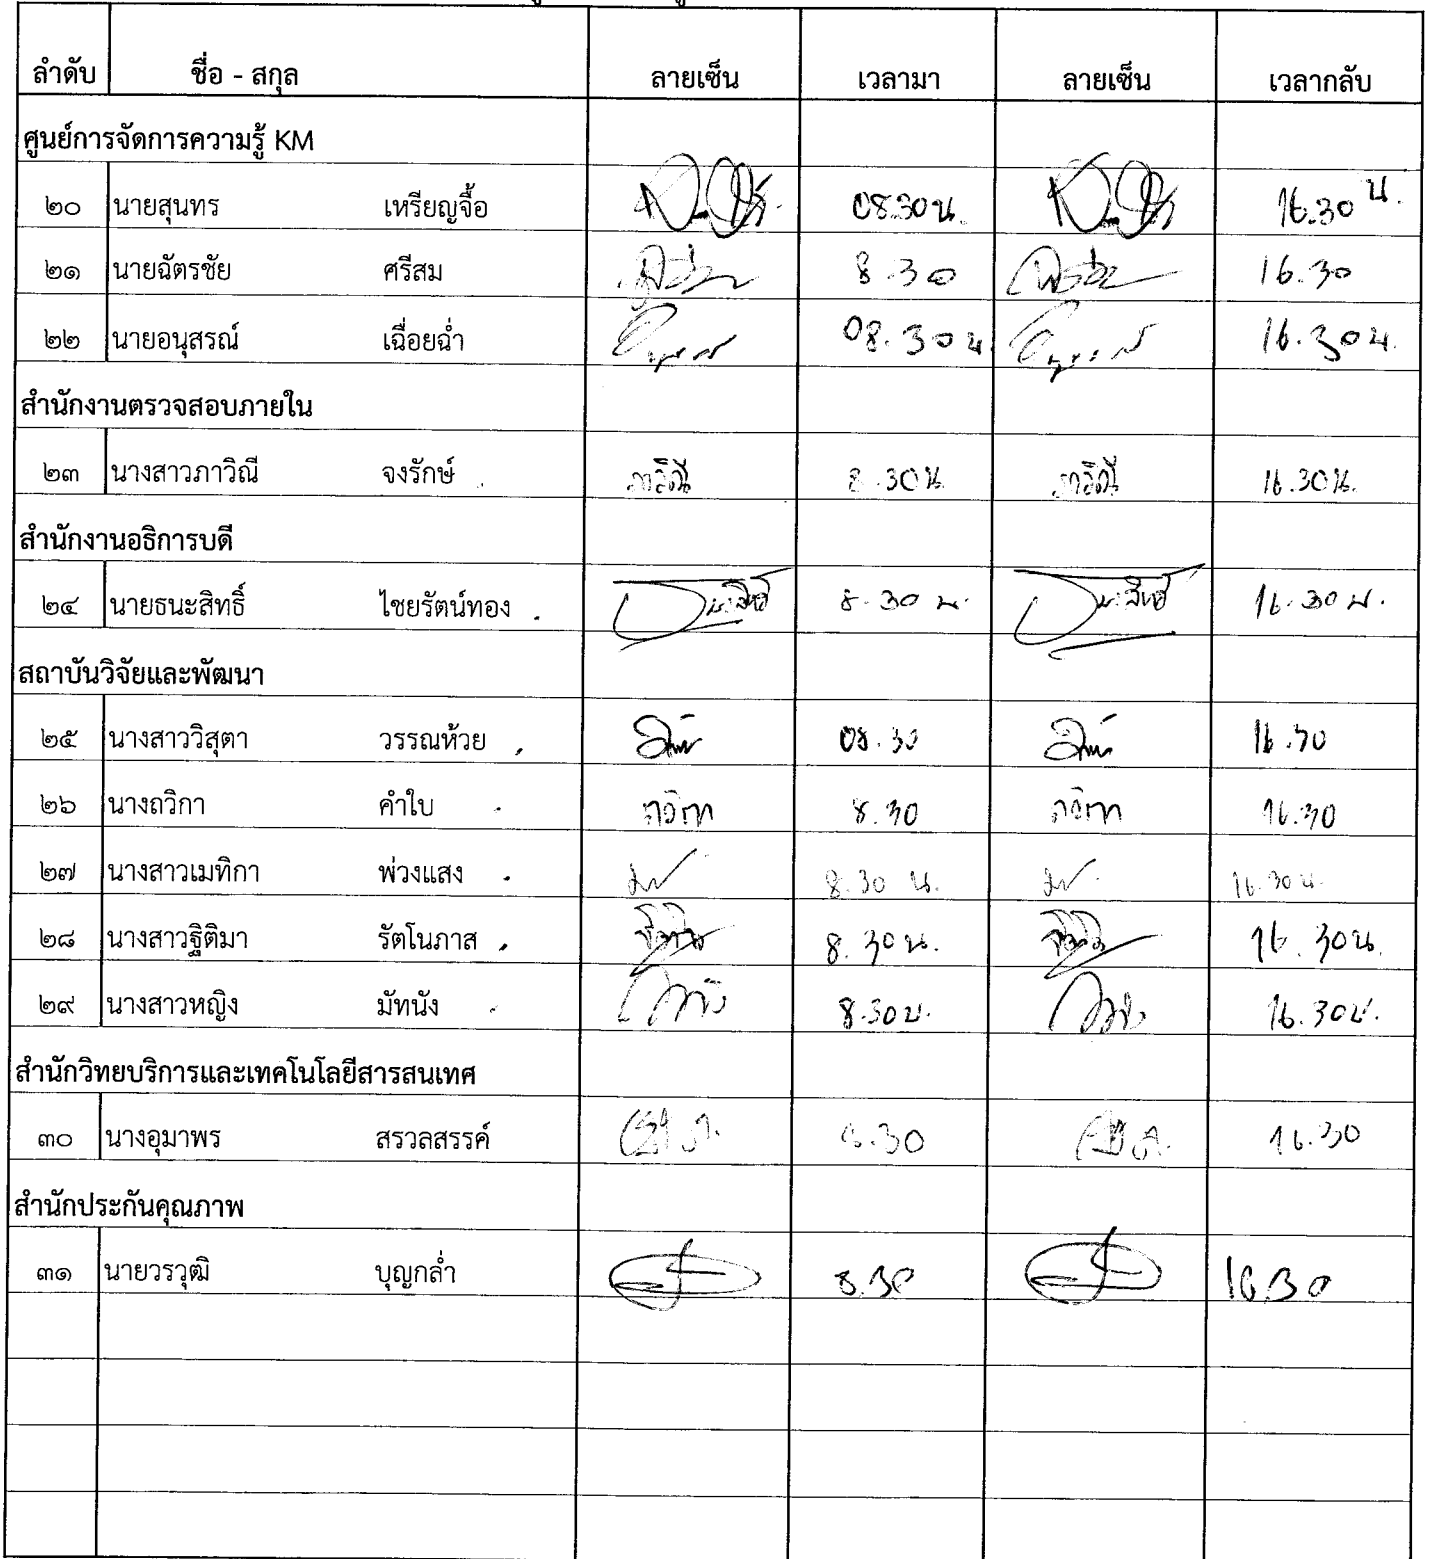 ลำดับ ชื่อ - สกุล ลายเซ็น เวลามา ลายเซ็น เวลากลับ
ศูนย์การจัดการความรู้ KM
๒๐ นายสุนทร เหรียญจื้อ 08.30 น. 16.30 น.
๒๑ นายฉัตรชัย ศรีสม 8.30 16.30
๒๒ นายอนุสรณ์ เฉื่อยฉ่ำ 08.30 น 16.30 น.
สำนักงานตรวจสอบภายใน
๒๓ นางสาวภาวิณี จงรักษ์ ภาวิณี 8.30 น. ภาวิณี 16.30 น.
สำนักงานอธิการบดี
๒๔ นายธนะสิทธิ์ ไชยรัตน์ทอง 8.30 น. 16.30 น.
สถาบันวิจัยและพัฒนา
๒๕ นางสาววิสุตา วรรณห้วย 08.30 16.30
๒๖ นางถวิกา คำใบ ถวิกา 8.30 ถวิกา 16.30
๒๗ นางสาวเมทิกา พ่วงแสง 8.30 น. 16.30 น.
๒๘ นางสาวฐิติมา รัตโนภาส 8.30 น. 16.30 น.
๒๙ นางสาวหญิง มัทนัง 8.30 น. 16.30 น.
สำนักวิทยบริการและเทคโนโลยีสารสนเทศ
๓๐ นางอุมาพร สรวลสรรค์ 8.30 16.30
สำนักประกันคุณภาพ
๓๑ นายวรวุฒิ บุญกล่ำ 8.30 16.30